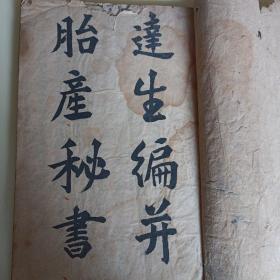 達生編并
胎產秘書